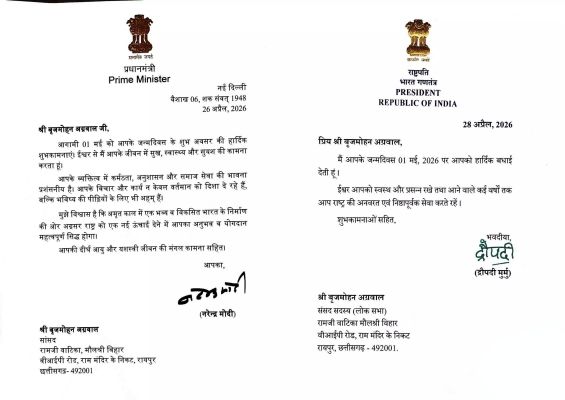 सत्यमेव जयते
प्रधानमंत्री
Prime Minister
नई दिल्ली
वैशाख 06, शक संवत् 1948
26 अप्रैल, 2026
श्री बृजमोहन अग्रवाल जी,
आगामी 01 मई को आपके जन्मदिवस के शुभ अवसर की हार्दिक
शुभकामनाएं। ईश्वर से मैं आपके जीवन में सुख, स्वास्थ्य और सुयश की कामना
करता हूं।
आपके व्यक्तित्व में कर्मठता, अनुशासन और समाज सेवा की भावना
प्रशंसनीय है। आपके विचार और कार्य न केवल वर्तमान को दिशा दे रहे हैं,
बल्कि भविष्य की पीढ़ियों के लिए भी अहम् हैं।
मुझे विश्वास है कि अमृत काल में एक भव्य व विकसित भारत के निर्माण
की ओर अग्रसर राष्ट्र को एक नई ऊंचाई देने में आपका अनुभव व योगदान
महत्वपूर्ण सिद्ध होगा।
आपकी दीर्घ आयु और यशस्वी जीवन की मंगल कामना सहित।
आपका,
(नरेन्द्र मोदी)
श्री बृजमोहन अग्रवाल
सांसद
रामजी वाटिका, मौलश्री विहार
वीआईपी रोड, राम मंदिर के निकट, रायपुर
छत्तीसगढ़- 492001
सत्यमेव जयते
राष्ट्रपति
भारत गणतंत्र
PRESIDENT
REPUBLIC OF INDIA
28 अप्रैल, 2026
प्रिय श्री बृजमोहन अग्रवाल,
मैं आपके जन्मदिवस 01 मई, 2026 पर आपको हार्दिक बधाई
देती हूं।
ईश्वर आपको स्वस्थ और प्रसन्न रखे तथा आने वाले कई वर्षों तक
आप राष्ट्र की अनवरत एवं निष्ठापूर्वक सेवा करते रहें।
शुभकामनाओं सहित,
भवदीया,
द्रौपदी
(द्रौपदी मुर्मु)
श्री बृजमोहन अग्रवाल
संसद सदस्य (लोक सभा)
रामजी वाटिका मौलश्री विहार
वीआईपी रोड, राम मंदिर के निकट
रायपुर, छत्तीसगढ़ - 492001.